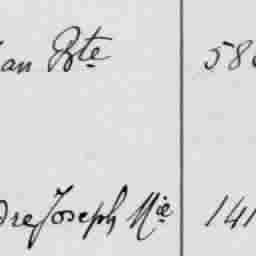 an Bte 58
dre Joseph Mie 141